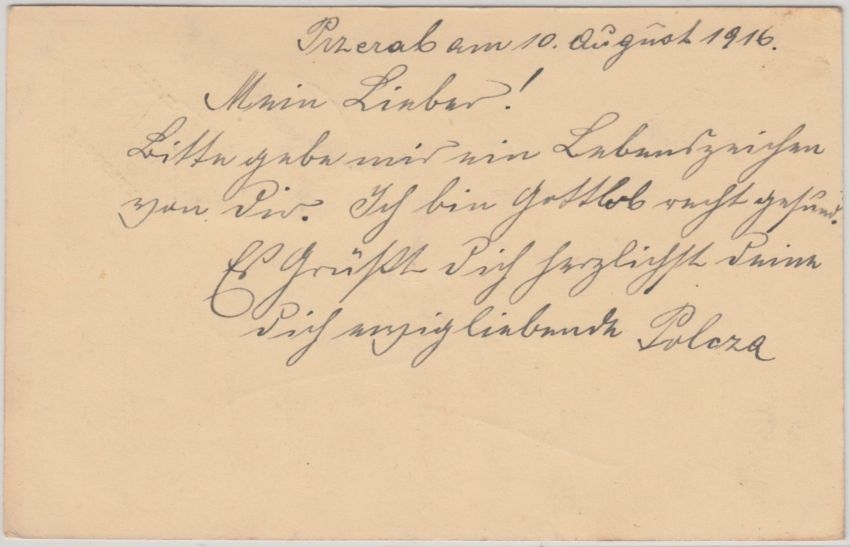 Przerab am 10. August 1916.
Mein Lieber!
Bitte gebe mir ein Lebenszeichen
von Dir. Ich bin Gottlob recht gesund.
Es Grüßt Dich herzlichst Deine
Dich ewigliebende Polcza